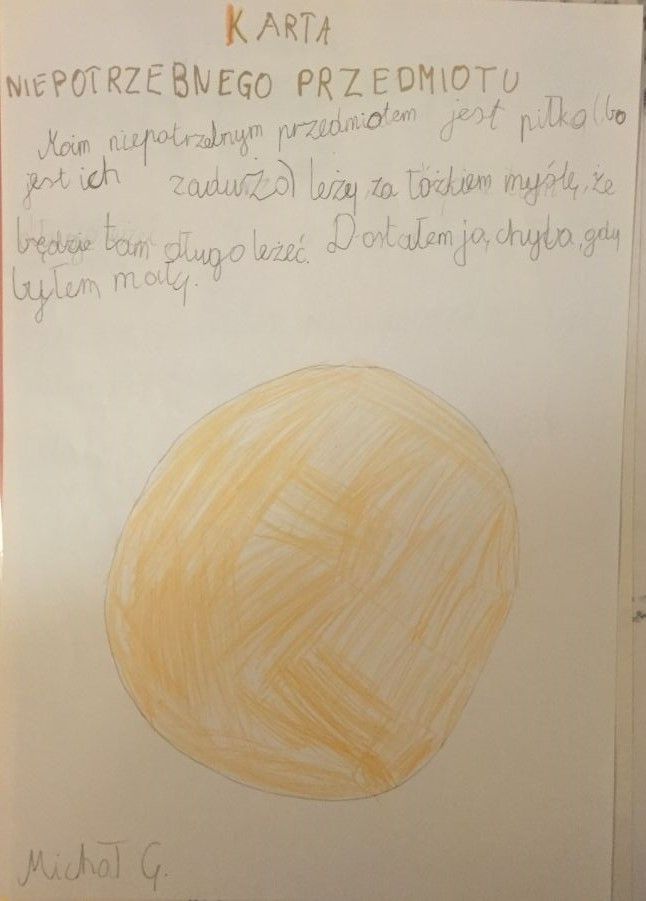 KARTA
NIEPOTRZEBNEGO PRZEDMIOTU
Moim niepotrzebnym przedmiotem jest piłka (bo
jest ich zadużo) leży za łóżkiem myślę, że
będzie tam długo leżeć. Dostałem ją, chyba, gdy
byłem mały.
Michał G.